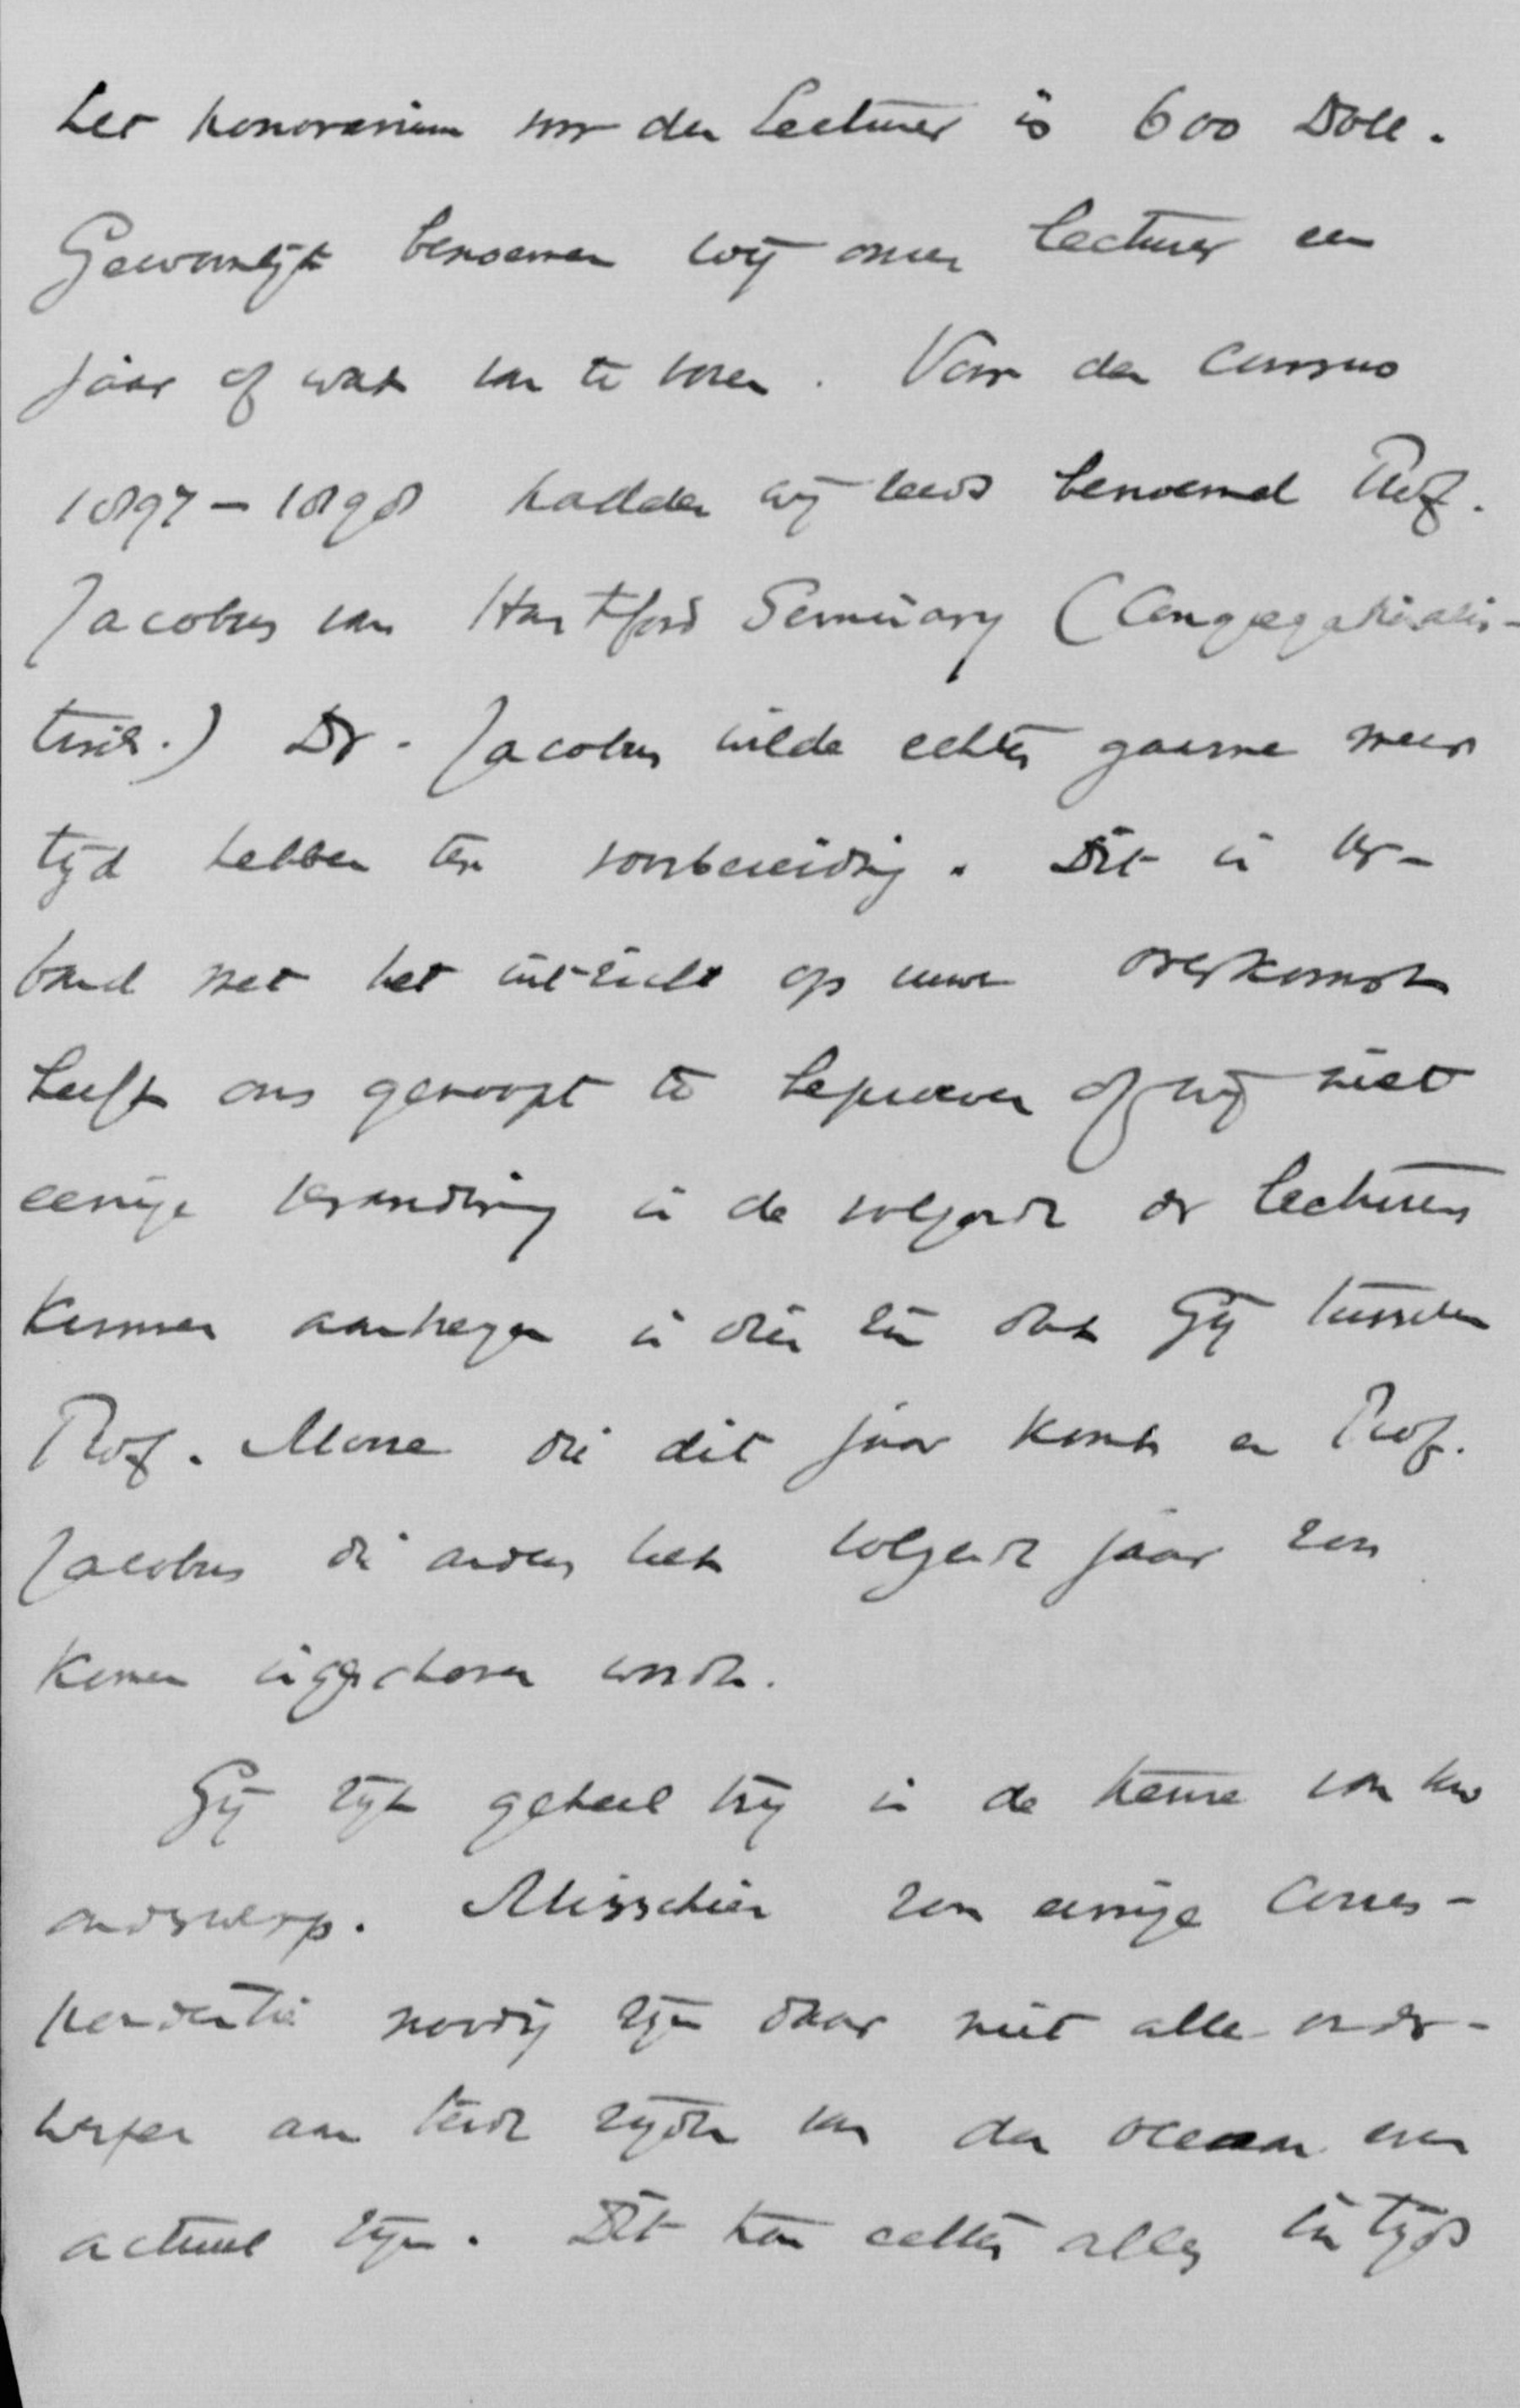 het honorarium voor den Lecturer is 600 Doll.
Gewoonlijk benoemen wij onzen Lecturer een
jaar of wat van te voren. Voor den Cursus
1897-1898 hadden wij reeds benoemd Prof.
Jacobus van Hartford Seminary (Congregationalis-
tisch.) Dr. Jacobus wilde echter gaarne meer
tijd hebben ter voorbereiding. Dit in ver-
band met het uitzicht op uwe overkomst
heeft ons genoopt te beproeven of wij niet
eenige verandering in de volgorde der Lecturers
kunnen aanbrengen in dien zin dat Gij tusschen
Prof. Morse die dit jaar komt en Prof.
Jacobus die anders het volgende jaar zou
komen ingeschoven wordt.
Gij zijt geheel vrij in de keuze van uw
onderwerp. Misschien zou eenige Corres-
pondentie noodig zijn daar niet alle onder-
werpen aan beide zijden van den oceaan even
actueel zijn. Dit kan echter alles in tijds